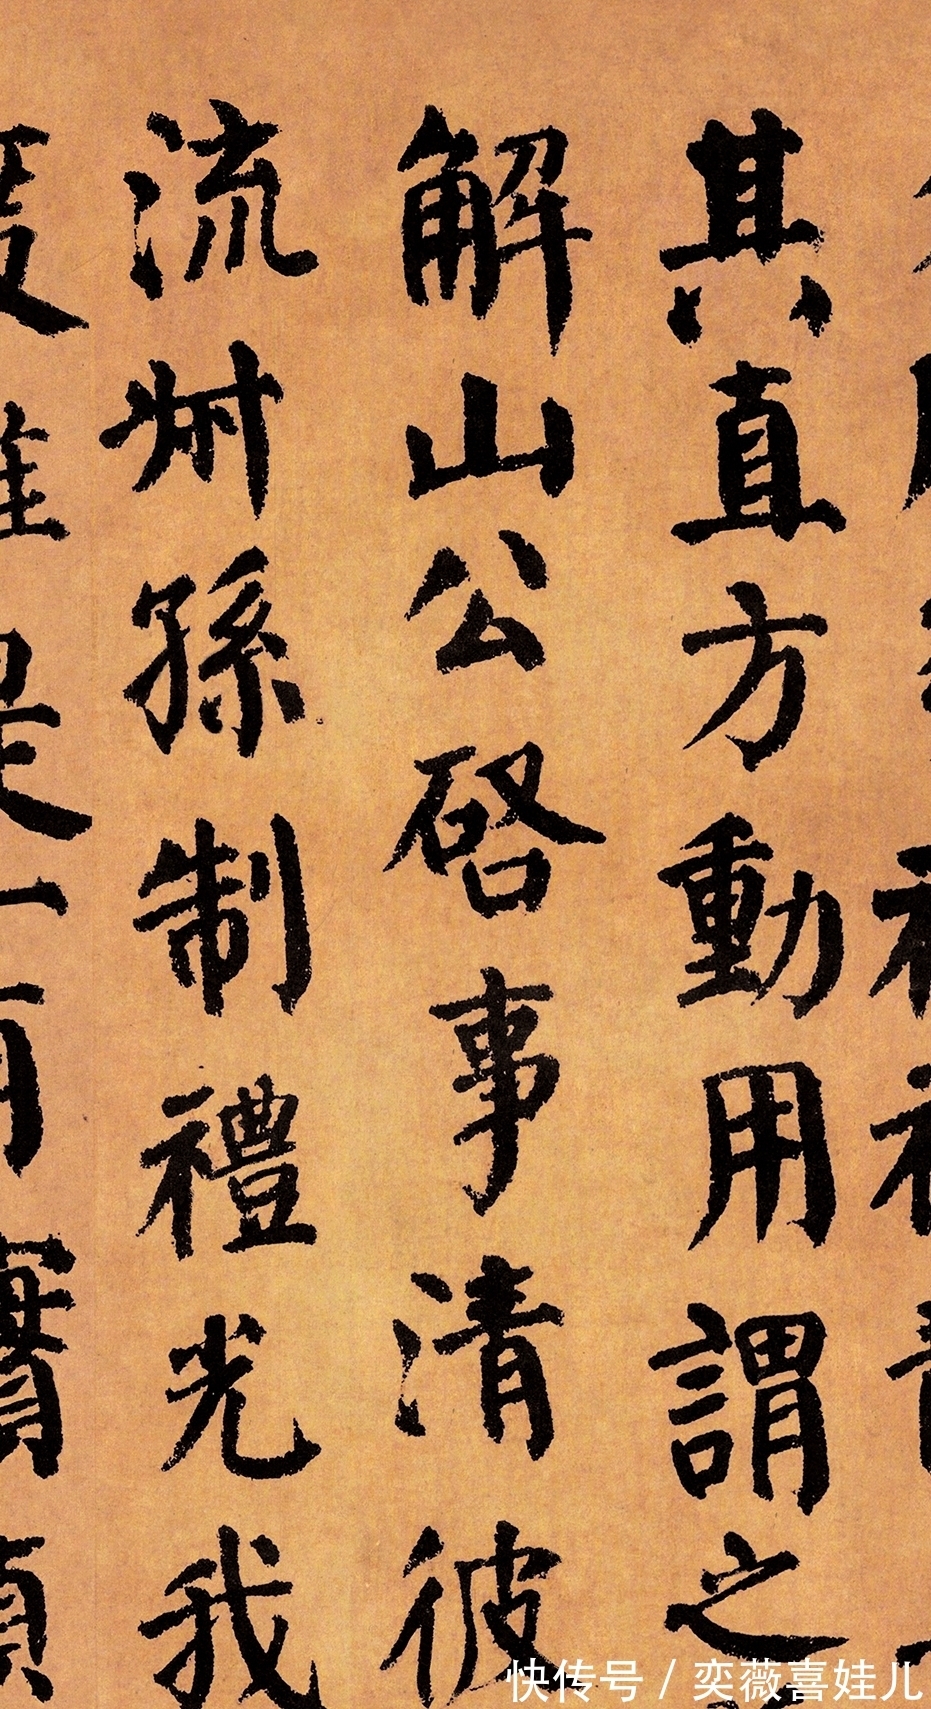 其直方動用謂之
解山公啓事清彼
流叔孫制禮光我
唯是一有實貞
快传号 / 奕薇喜娃儿